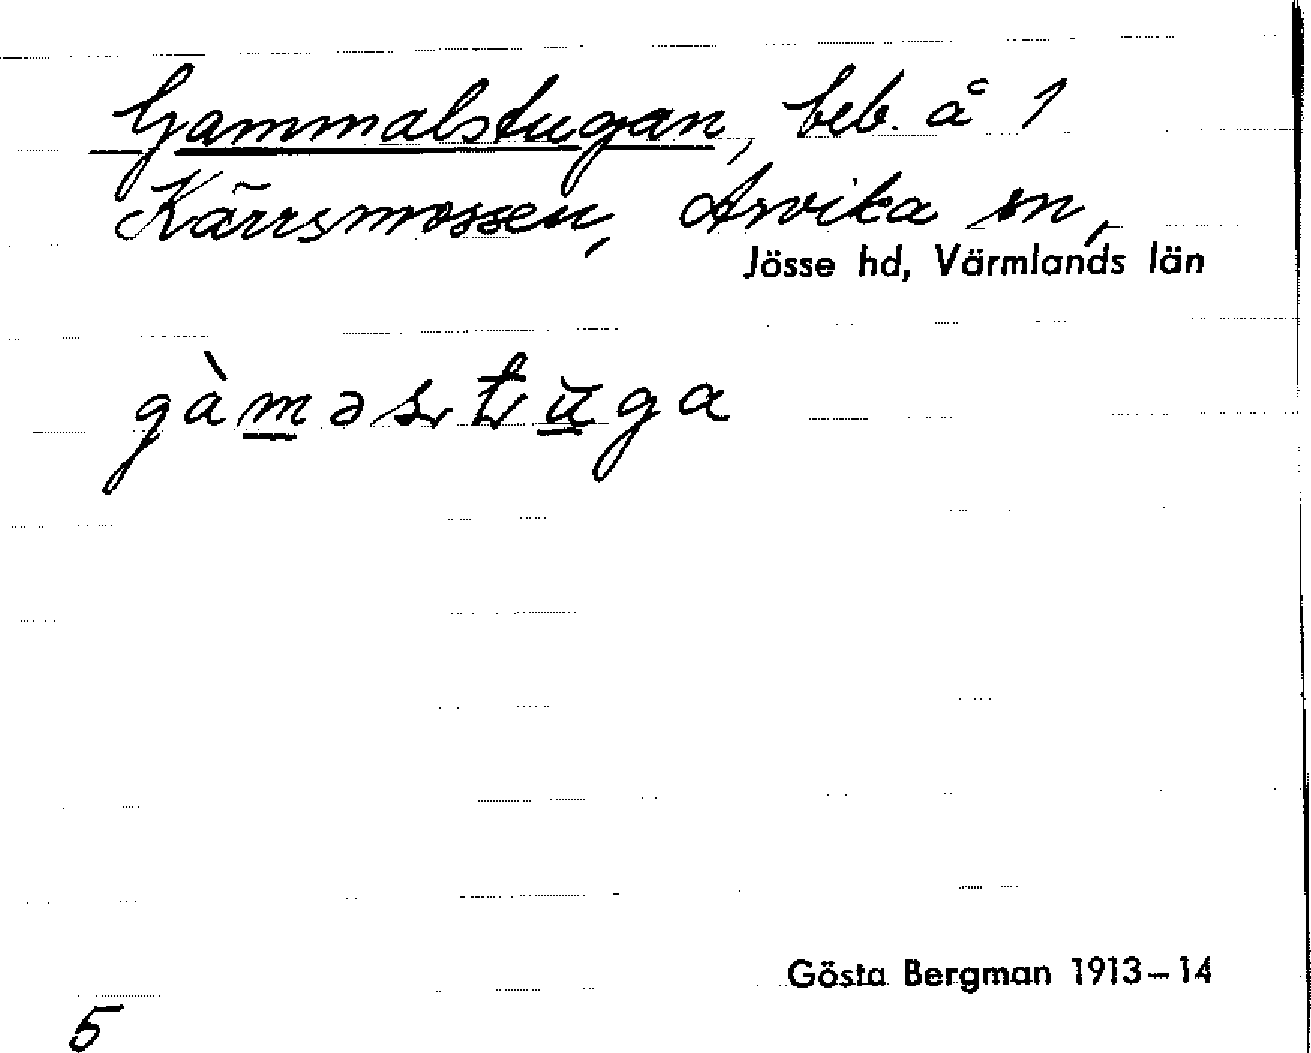 Gammalstugan, beb. å 1
Kärrsmossen, Arvika sn,
Jösse hd, Värmlands län
gàməstuga
Gösta Bergman 1913–14
5